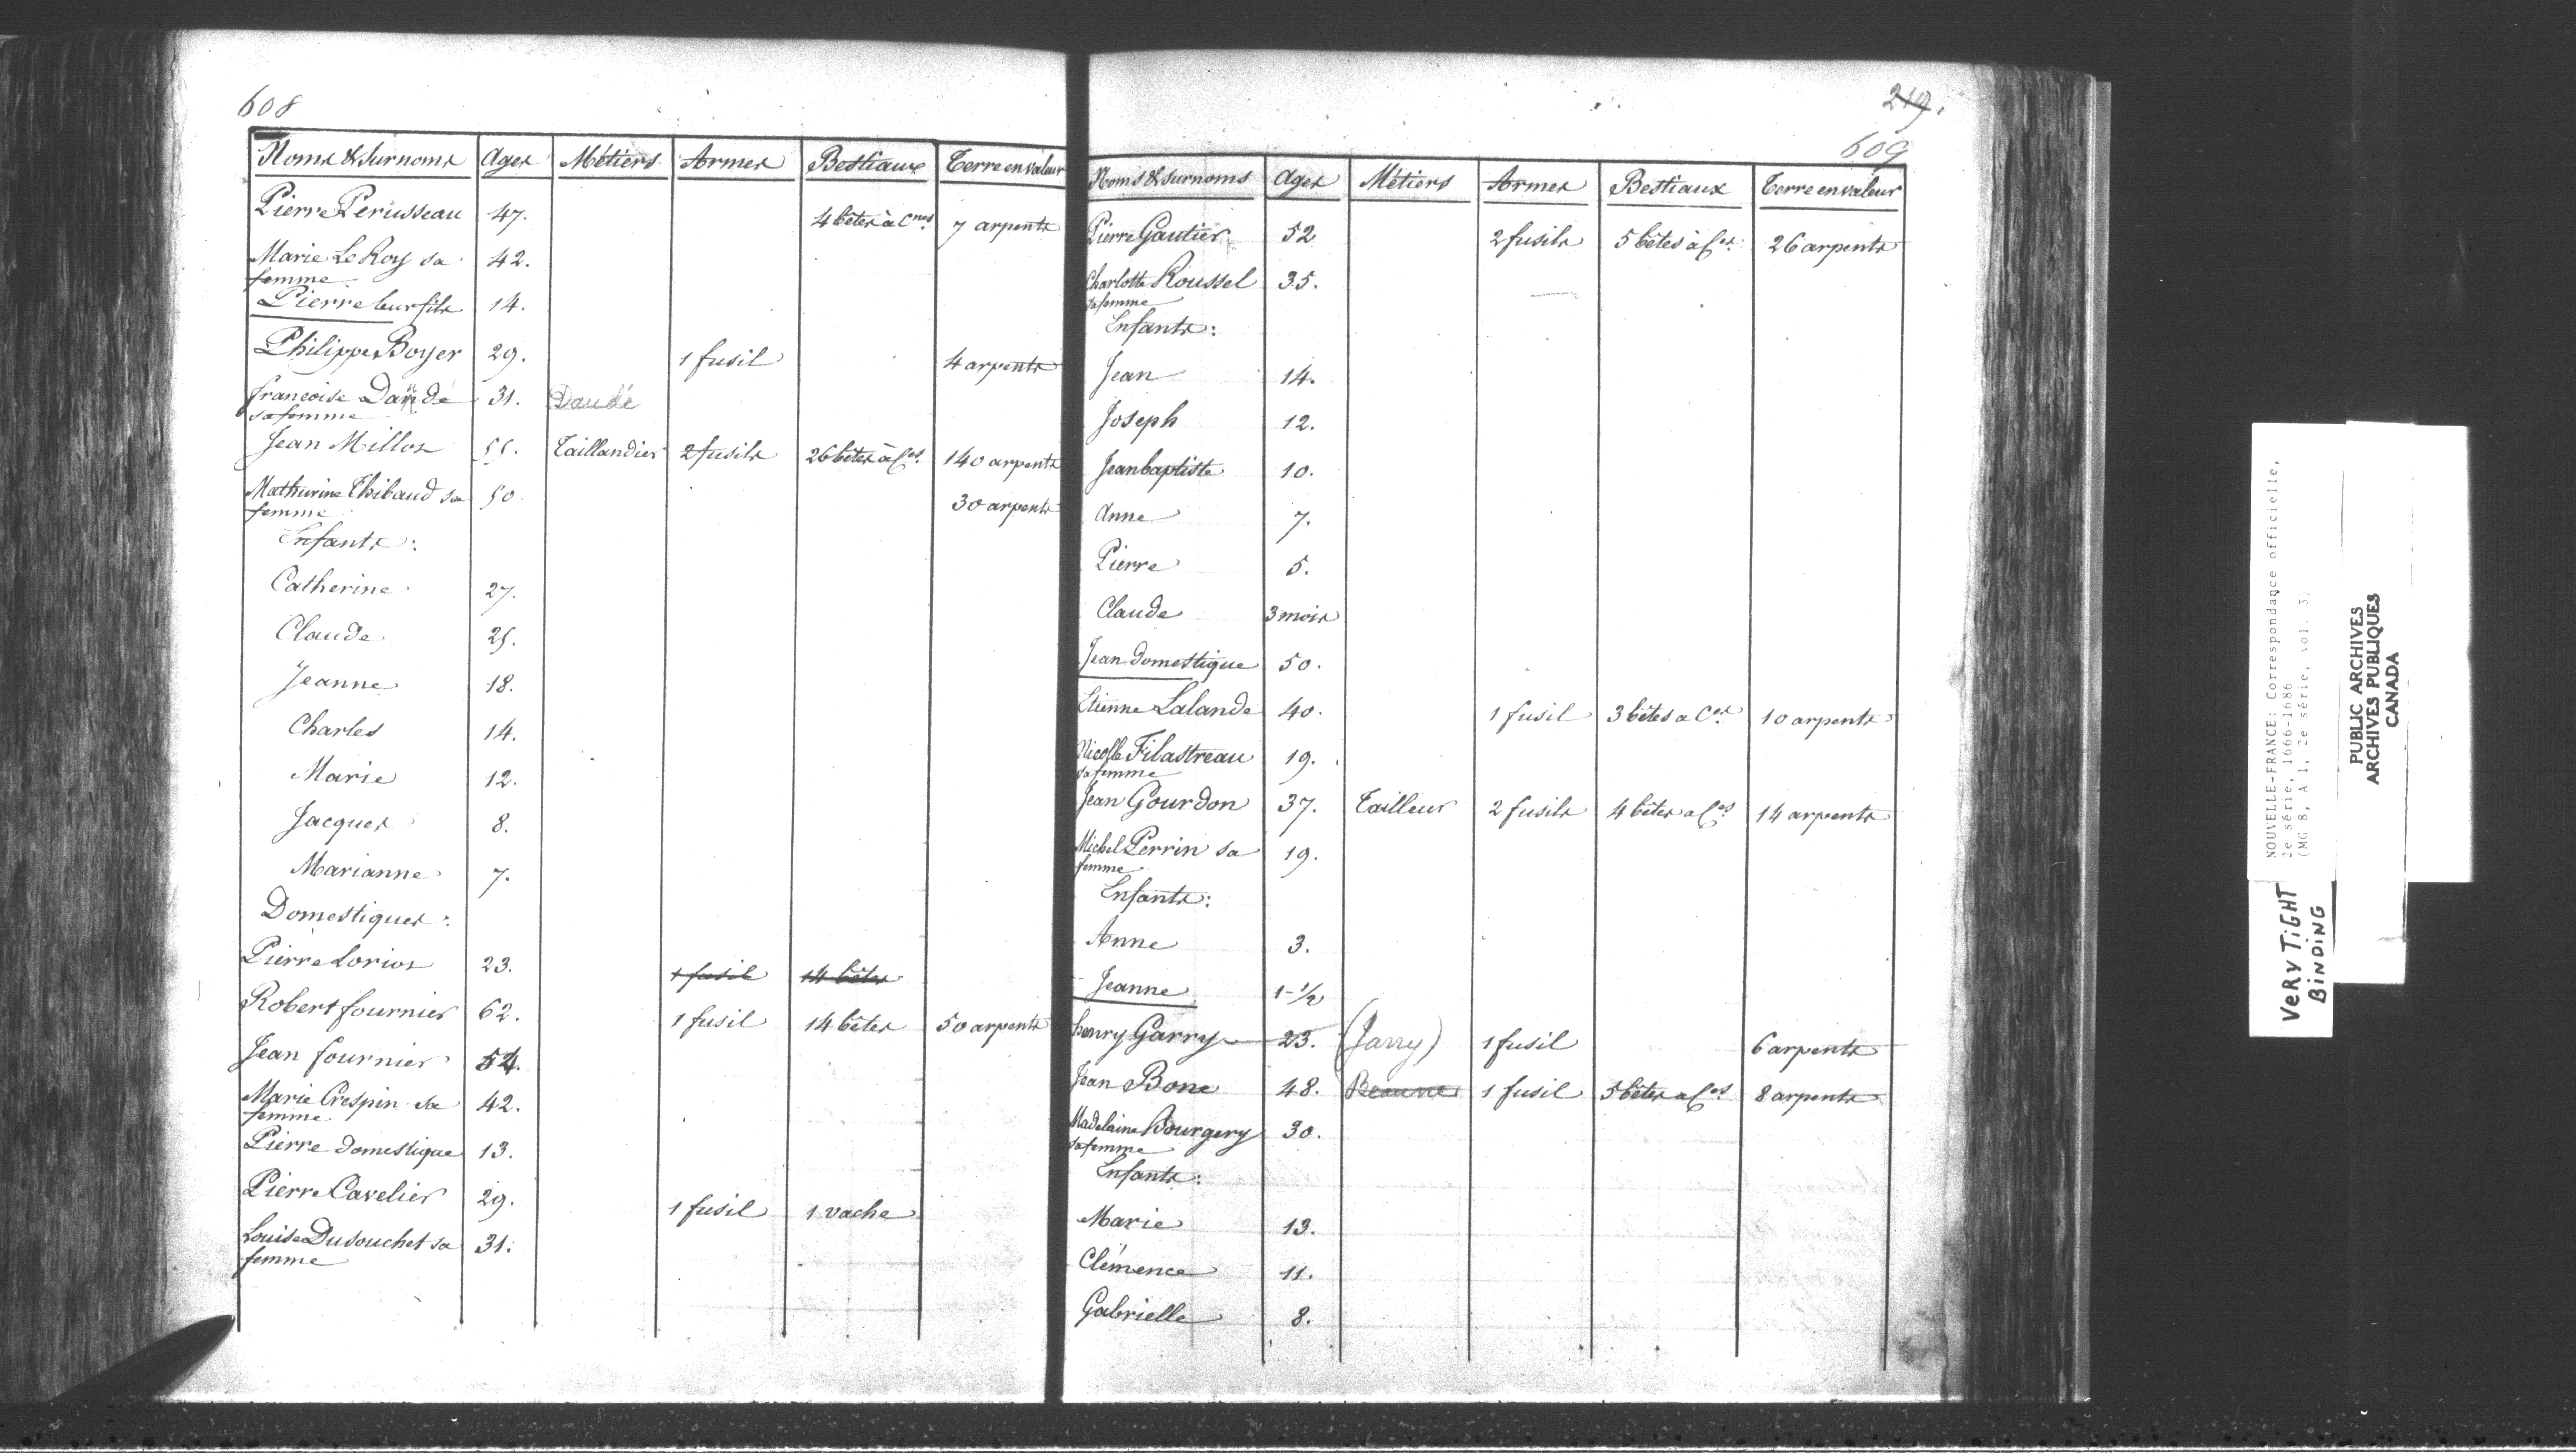 608
Noms & Surnoms Ages Métiers Armes Bestiaux Terre en valeur
Pierre Perusseau 47. 4 bêtes à Cnes 7 arpents
Marie Le Roy sa 42.
femme
Pierre leur fils 14.
Philippe Boyer 29. 1 fusil 4 arpents
francoise Daudé 31. Daudé
sa femme
Jean Millot 55. Taillandier 2 fusils 26 bêtes à Ces 140 arpents
Mathurine Thibaud sa 50
femme 30 arpents
Enfants:
Catherine 27.
Claude 25.
Jeanne 18.
Charles 14.
Marie 12.
Jacques 8.
Marianne 7.
Domestiques:
Pierre Loriot 23. 1 fusil 14 bêtes
Robert fournier 62. 1 fusil 14 bêtes 50 arpents
Jean fournier 54.
Marie Crespin sa 42.
femme
Pierre domestique 13.
Pierre Cavelier 29. 1 fusil 1 vache
Louise Dusouchet sa 31.
femme
219.
609
Noms & Surnoms Ages Métiers Armes Bestiaux Terre en valeur
Pierre Gautier 52 2 fusils 5 bêtes à Ces 26 arpents
Charlotte Roussel 35.
sa femme
Enfants:
Jean 14.
Joseph 12.
Jean baptiste 10.
Anne 7.
Pierre 5.
Claude 3 mois
Jean domestique 50.
Etienne Lalande 40. 1 fusil 3 bêtes a Ces 10 arpents
Nicolle Filastreau 19.
sa femme
Jean Gourdon 37. Tailleur 2 fusils 4 bêtes a Ces 14 arpents
Michel Perrin sa 19.
femme
Enfants:
Anne 3.
Jeanne 1-1/2
henry Garry 23. (Jarry) 1 fusil 6 arpents
Jean Bone 48. Beaune 1 fusil 5 bêtes a Ces 8 arpents
Madelaine Bourgery 30.
sa femme
Enfants:
Marie 13.
Clémence 11.
Gabrielle 8.
NOUVELLE-FRANCE: Correspondance officielle,
2e série, 1666-1686
(MG 8, A 1, 2e série, vol. 3)
VERY TIGHT
BINDING
PUBLIC ARCHIVES
ARCHIVES PUBLIQUES
CANADA